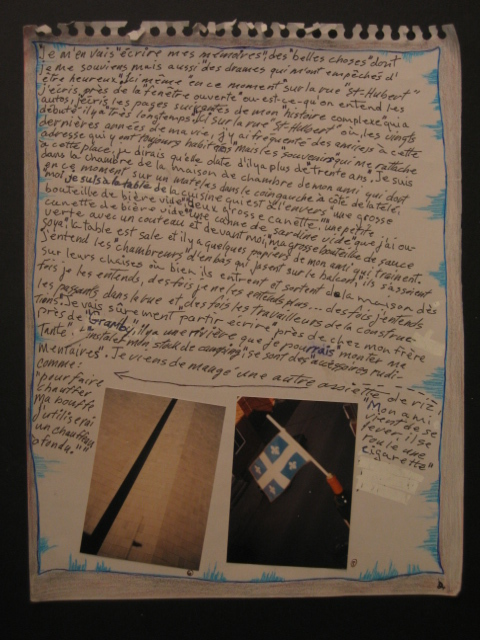 Je m'en vais "écrire mes mémoires", des "belles choses" dont
je me souviens mais aussi "des drames qui m'ont empêchés d'
être heureux". "Ici même" en ce moment sur la rue "St-Hubert"
j'écris, près de la fenêtre ouverte où est-ce-qu'on entend les
autos, j'écris les pages suivantes de "mon histoire complexe" qui a
débuté il y a très longtemps. Ici sur la rue "St-Hubert" où, les vingt
dernières années de ma vie, j'y ai fréquenté des ami(e)s à cette
adresse qui y ont toujours habité "mais les" souvenirs qui me rattache
à cette place, je dirais qu'elle date d'il y a plus de trente ans. Je suis
dans la chambre de la maison de chambre de mon ami qui dort
en ce moment sur un matelas dans le coin gauche à côté de la télé.
moi je suis à la table de la cuisine qui est à l'envers", une grosse
bouteille de bière vide, deux grosse canette, une petite
canette de bière vide, "une canne de sardine vide" que j'ai ou-
verte avec un couteau et devant moi, ma grosse bouteille de sauce
soya. la table est sale et il y a quelques papiers de mon ami qui trainent.
J'entend les "chambreurs" d'en bas qui jasent sur le balcon, ils s'assoient
sur leurs chaises ou bien ils entrent et sortent de la maison dès
fois je les entends, des fois je ne les entends plus... des fois j'entends
les passants dans la rue et des fois les travailleurs de la construc-
tion." Je vais sûrement partir écrire "près de chez mon frère
près de "Granby", il y a une rivière que je pourrais monter ma
Tante". installer mon stock de camping, se sont des "accesoires rudi-
mentaires". Je viens de mangé une autre assiette de riz!
comme:
pour faire
chauffer
Ma bouffe
j'utiliserai
un chauffeur
à fondu.""
"Mon ami
vient de se
lever, il se
roule une
cigarette"